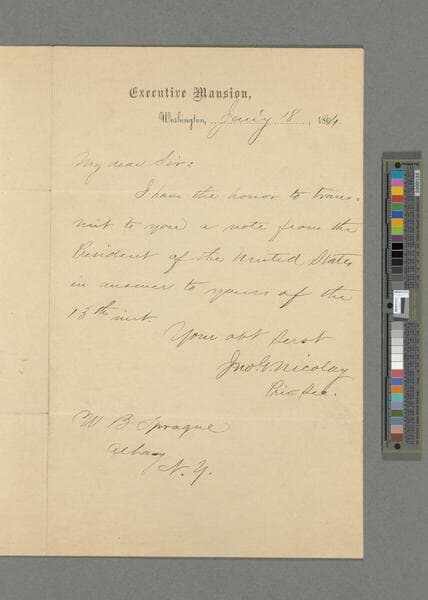 Executive Mansion,
Washington, Jan'y 18, 1864.
My dear Sir:
I have the honor to trans=
mit to you a note from the
President of the United States
in answer to yours of the
13th inst.
Your obt Servt
Jno. G. Nicolay
Priv. Sec.
W B Sprague
Albany
N. Y.